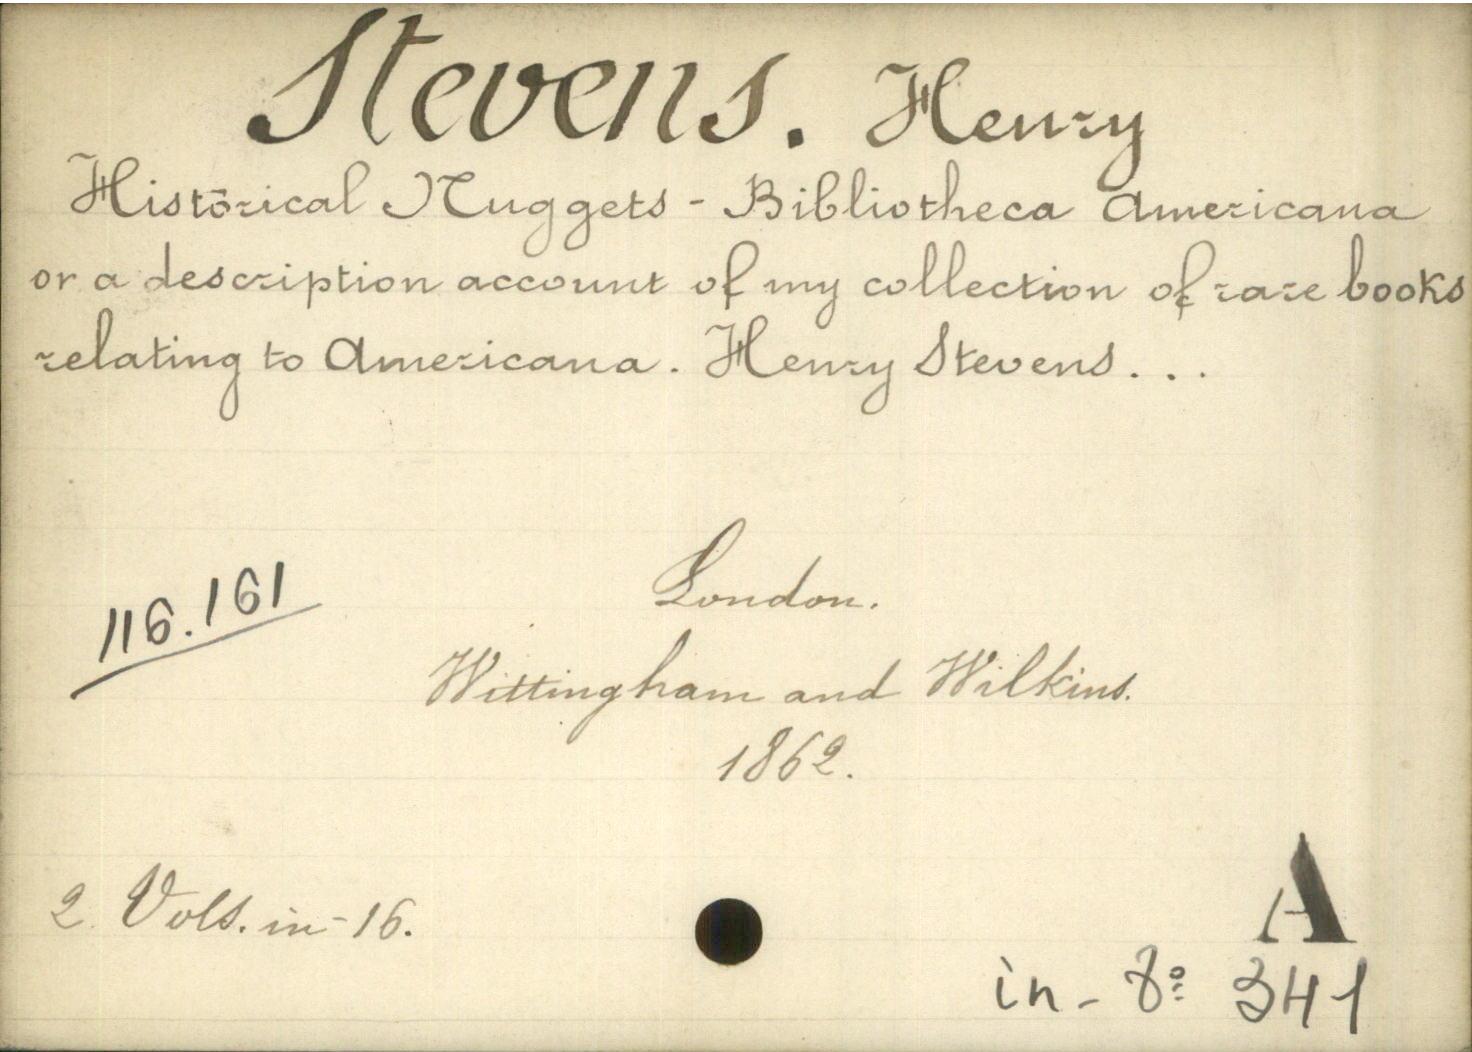 Stevens. Henry
Historical Nuggets - Bibliotheca Americana
or a description account of my collection of rare books
relating to Americana. Henry Stevens...
London.
116.161
Wittingham and Wilkins.
1862.
2 Vols. in-16.
A
in-8º 341